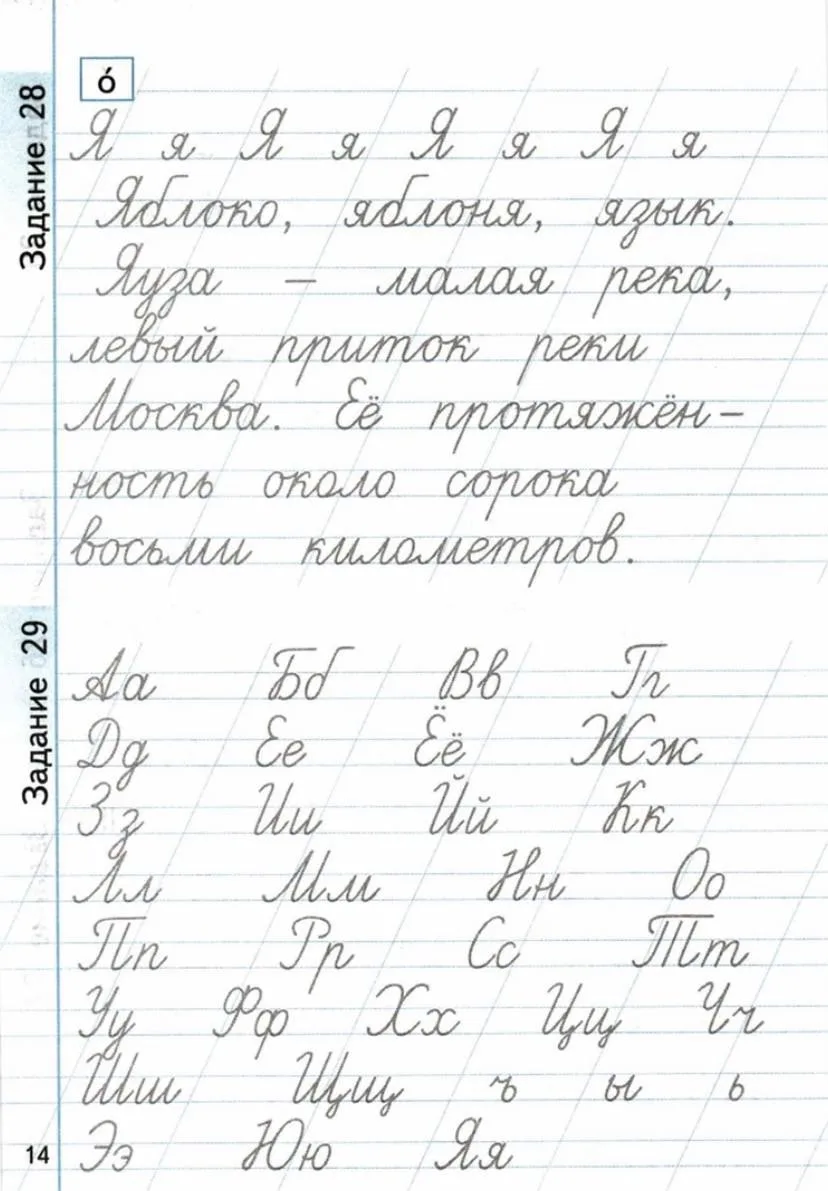 Задание 28
о́
Я я Я я Я я Я я
Яблоко, яблоня, язык.
Яуза – малая река,
левый приток реки
Москва. Её протяжён-
ность около сорока
восьми километров.
Задание 29
Аа Бб Вв Гг
Дд Ее Ёё Жж
Зз Ии Йй Кк
Лл Мм Нн Оо
Пп Рр Сс Тт
Уу Фф Хх Цц Чч
Шш Щщ ъ ы ь
Ээ Юю Яя
14